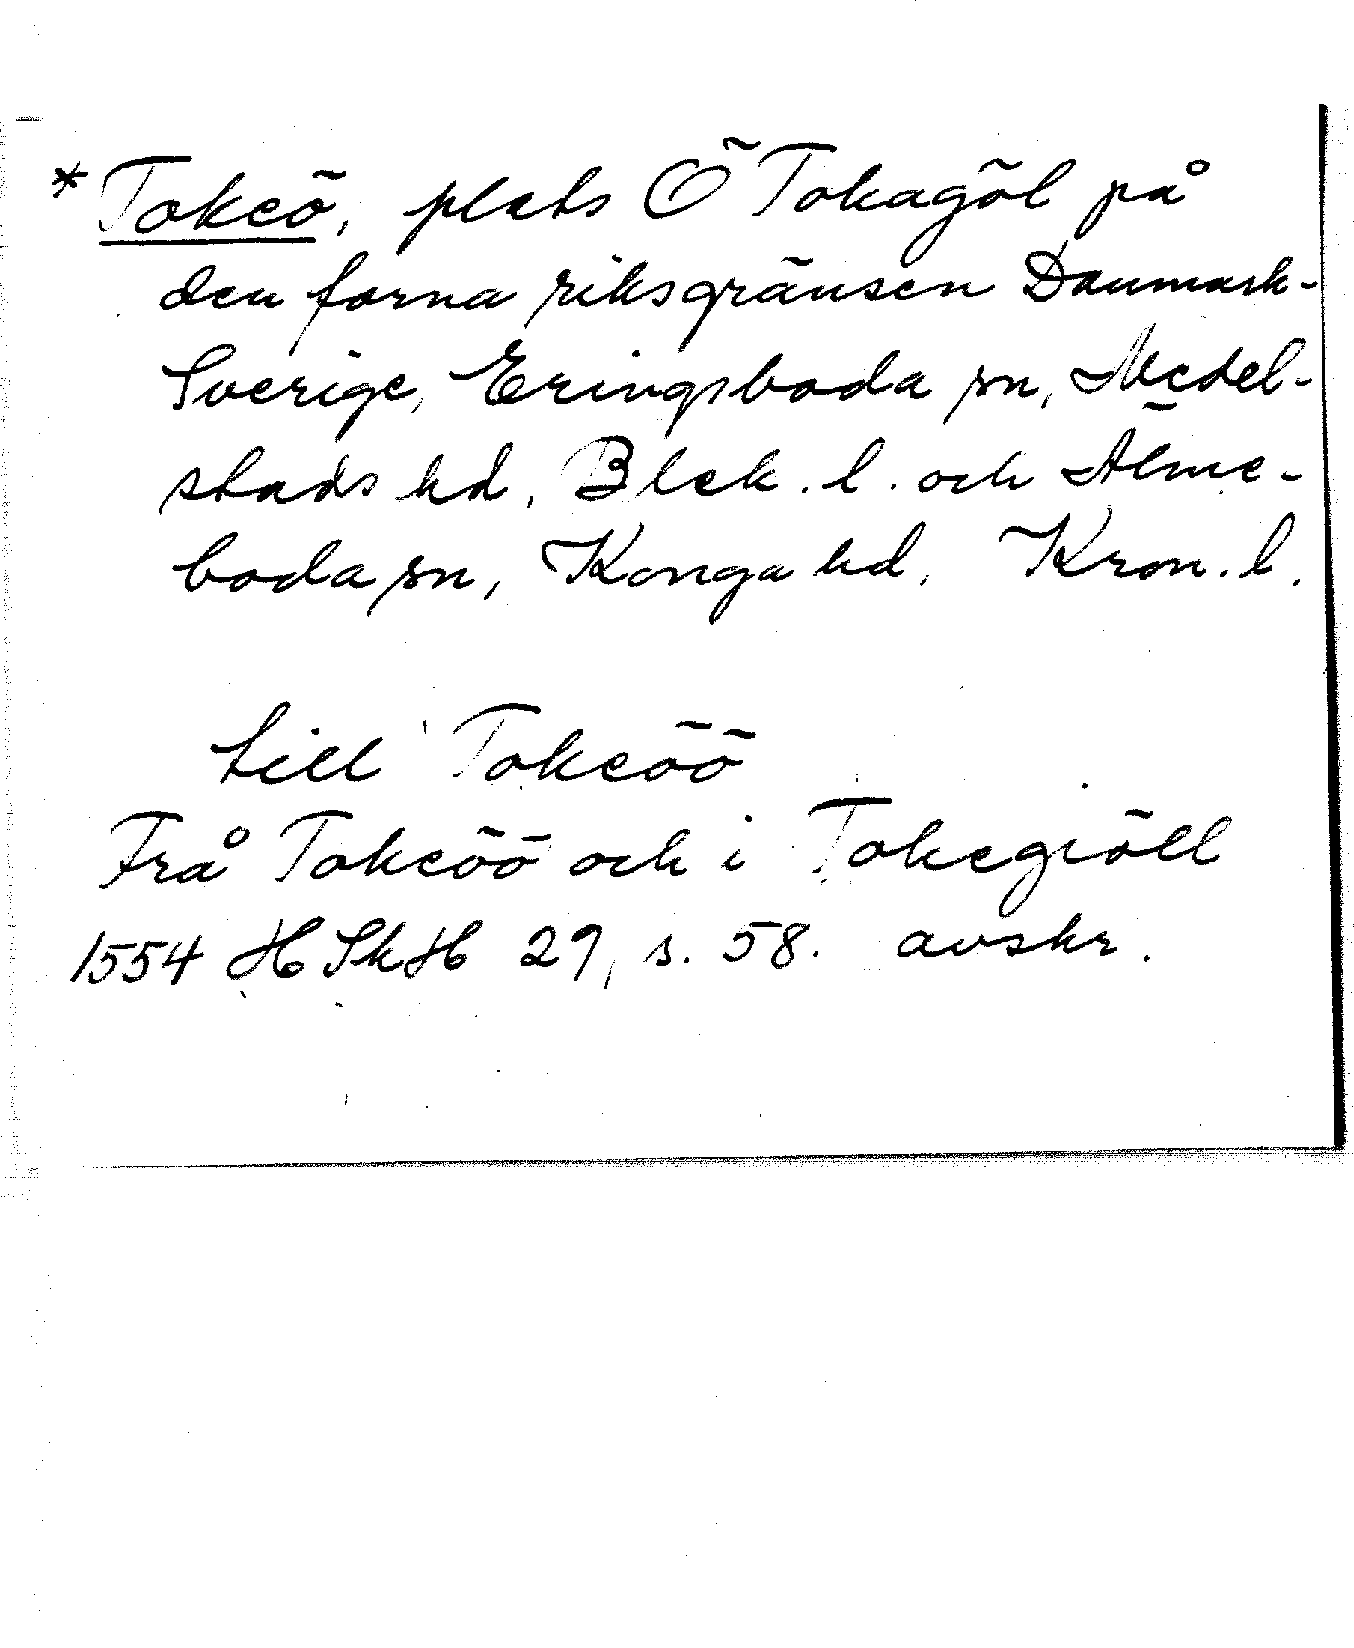 *Tokeö, plats Ö Tokagöl på
den forna riksgränsen Danmark-
Sverige, Eringsboda sn, Medel-
stads hd, Blek. l. och Älme-
boda sn, Konga hd, Kron. l.
till Tokeöö
Frå Tokeöö och i Tokegiöll
1554 HSkH 29, s. 58. avskr.